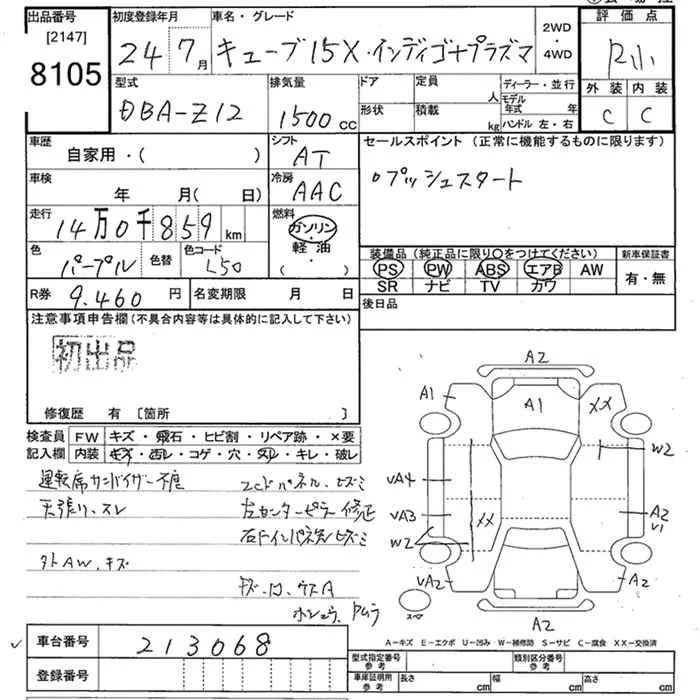 出品番号
[2147]
8105
初度登録年月
24 7月
車名・グレード
キューブ 15X・インディゴ+プラズマ
2WD・4WD
評価点
R小
外装 内装
C C
型式
DBA-Z12
排気量
1500 cc
ドア
定員
人
形状
積載
kg
ディーラー・並行
モデル年式 年
ハンドル 左・右
車歴
自家用・( )
シフト
AT
セールスポイント(正常に機能するものに限ります)
プッシュスタート
車検
年 月( 日)
冷房
AAC
走行
14万0千859km
燃料
ガソリン・軽油・( )
色
パープル
色替
色コード
L50
装備品(純正品に限り○をつけてください)
PS PW ABS エアB AW
SR ナビ TV カワ
新車保証書
有・無
R券
9.460円
名変期限 月 日
後日品
注意事項申告欄(不具合内容等は具体的に記入して下さい)
初出品
修復歴 有 [箇所 ]
検査員記入欄
FW キズ・飛石・ヒビ割・リペア跡・×要
内装 キズ・汚レ・コゲ・穴・スレ・キレ・破レ
運転席サンバイザー不良
天張り、スレ
外AW、キズ
左センターピラー修正
キズ・凹、ウスA
A2
A1
A1
XX
W2
VA4
VA3
XX
A2
V1
W2
VA2
A2
A2
A-キズ E-エクボ U-凹み W-補修跡 S-サビ C-腐食 XX-交換済
車台番号
213068
登録番号
型式指定番号 参考
類別区分番号 参考
車庫証明用 参考
長さ cm
幅 cm
高さ cm